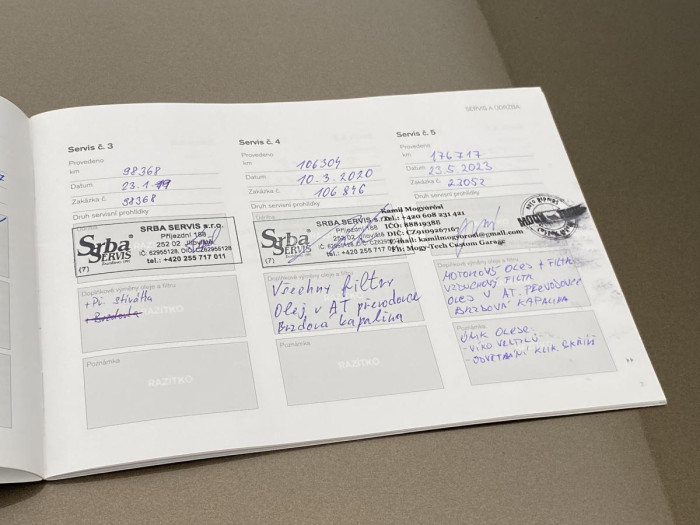 SERVIS A ÚDRŽBA
Servis č. 3
Provedeno
km 98368
Datum 23.1.19
Zakázka č. 98368
Druh servisní prohlídky
Srba SERVIS
SRBA SERVIS s.r.o.
Příjezdní 188
252 02 Jíloviště
IČ: 62955128, DIČ: CZ62955128
tel.: +420 255 717 011
(7)
RAZÍTKO
Doplňkové výměny oleje a filtru
+Př.
+ Brzdová
Poznámka
RAZÍTKO
Servis č. 4
Provedeno
km 106304
Datum 10.3.2020
Zakázka č. 106 846
Druh servisní prohlídky
Srba SERVIS
SRBA SERVIS s.r.o.
Příjezdní 188
252 02 Jíloviště
tel.: +420 255 717 011
(7)
Doplňkové výměny oleje a filtru
Všechny filtry
Olej v AT převodovce
Brzdová kapalina
Poznámka
RAZÍTKO
Servis č. 5
Provedeno
km 176717
Datum 23.5.2023
Zakázka č. 23052
Druh servisní prohlídky
Kamil Mogyorósi
Tel.: +420 608 231 421
IČO: 88819388
E-mail: kamilmogyorosi@gmail.com
Fb: Mogy-Tech Custom Garage
Doplňkové výměny oleje a filtru
MOTOROVÝ OLEJ + FILTR
VZDUCHOVÝ FILTR
OLEJ V AT PŘEVODOVCE
BRZDOVÁ KAPALINA
Poznámka
ÚNIK OLEJE:
- VÍKO VENTILŮ
- ODVĚTRÁNÍ KLIK. SKŘÍNĚ
7